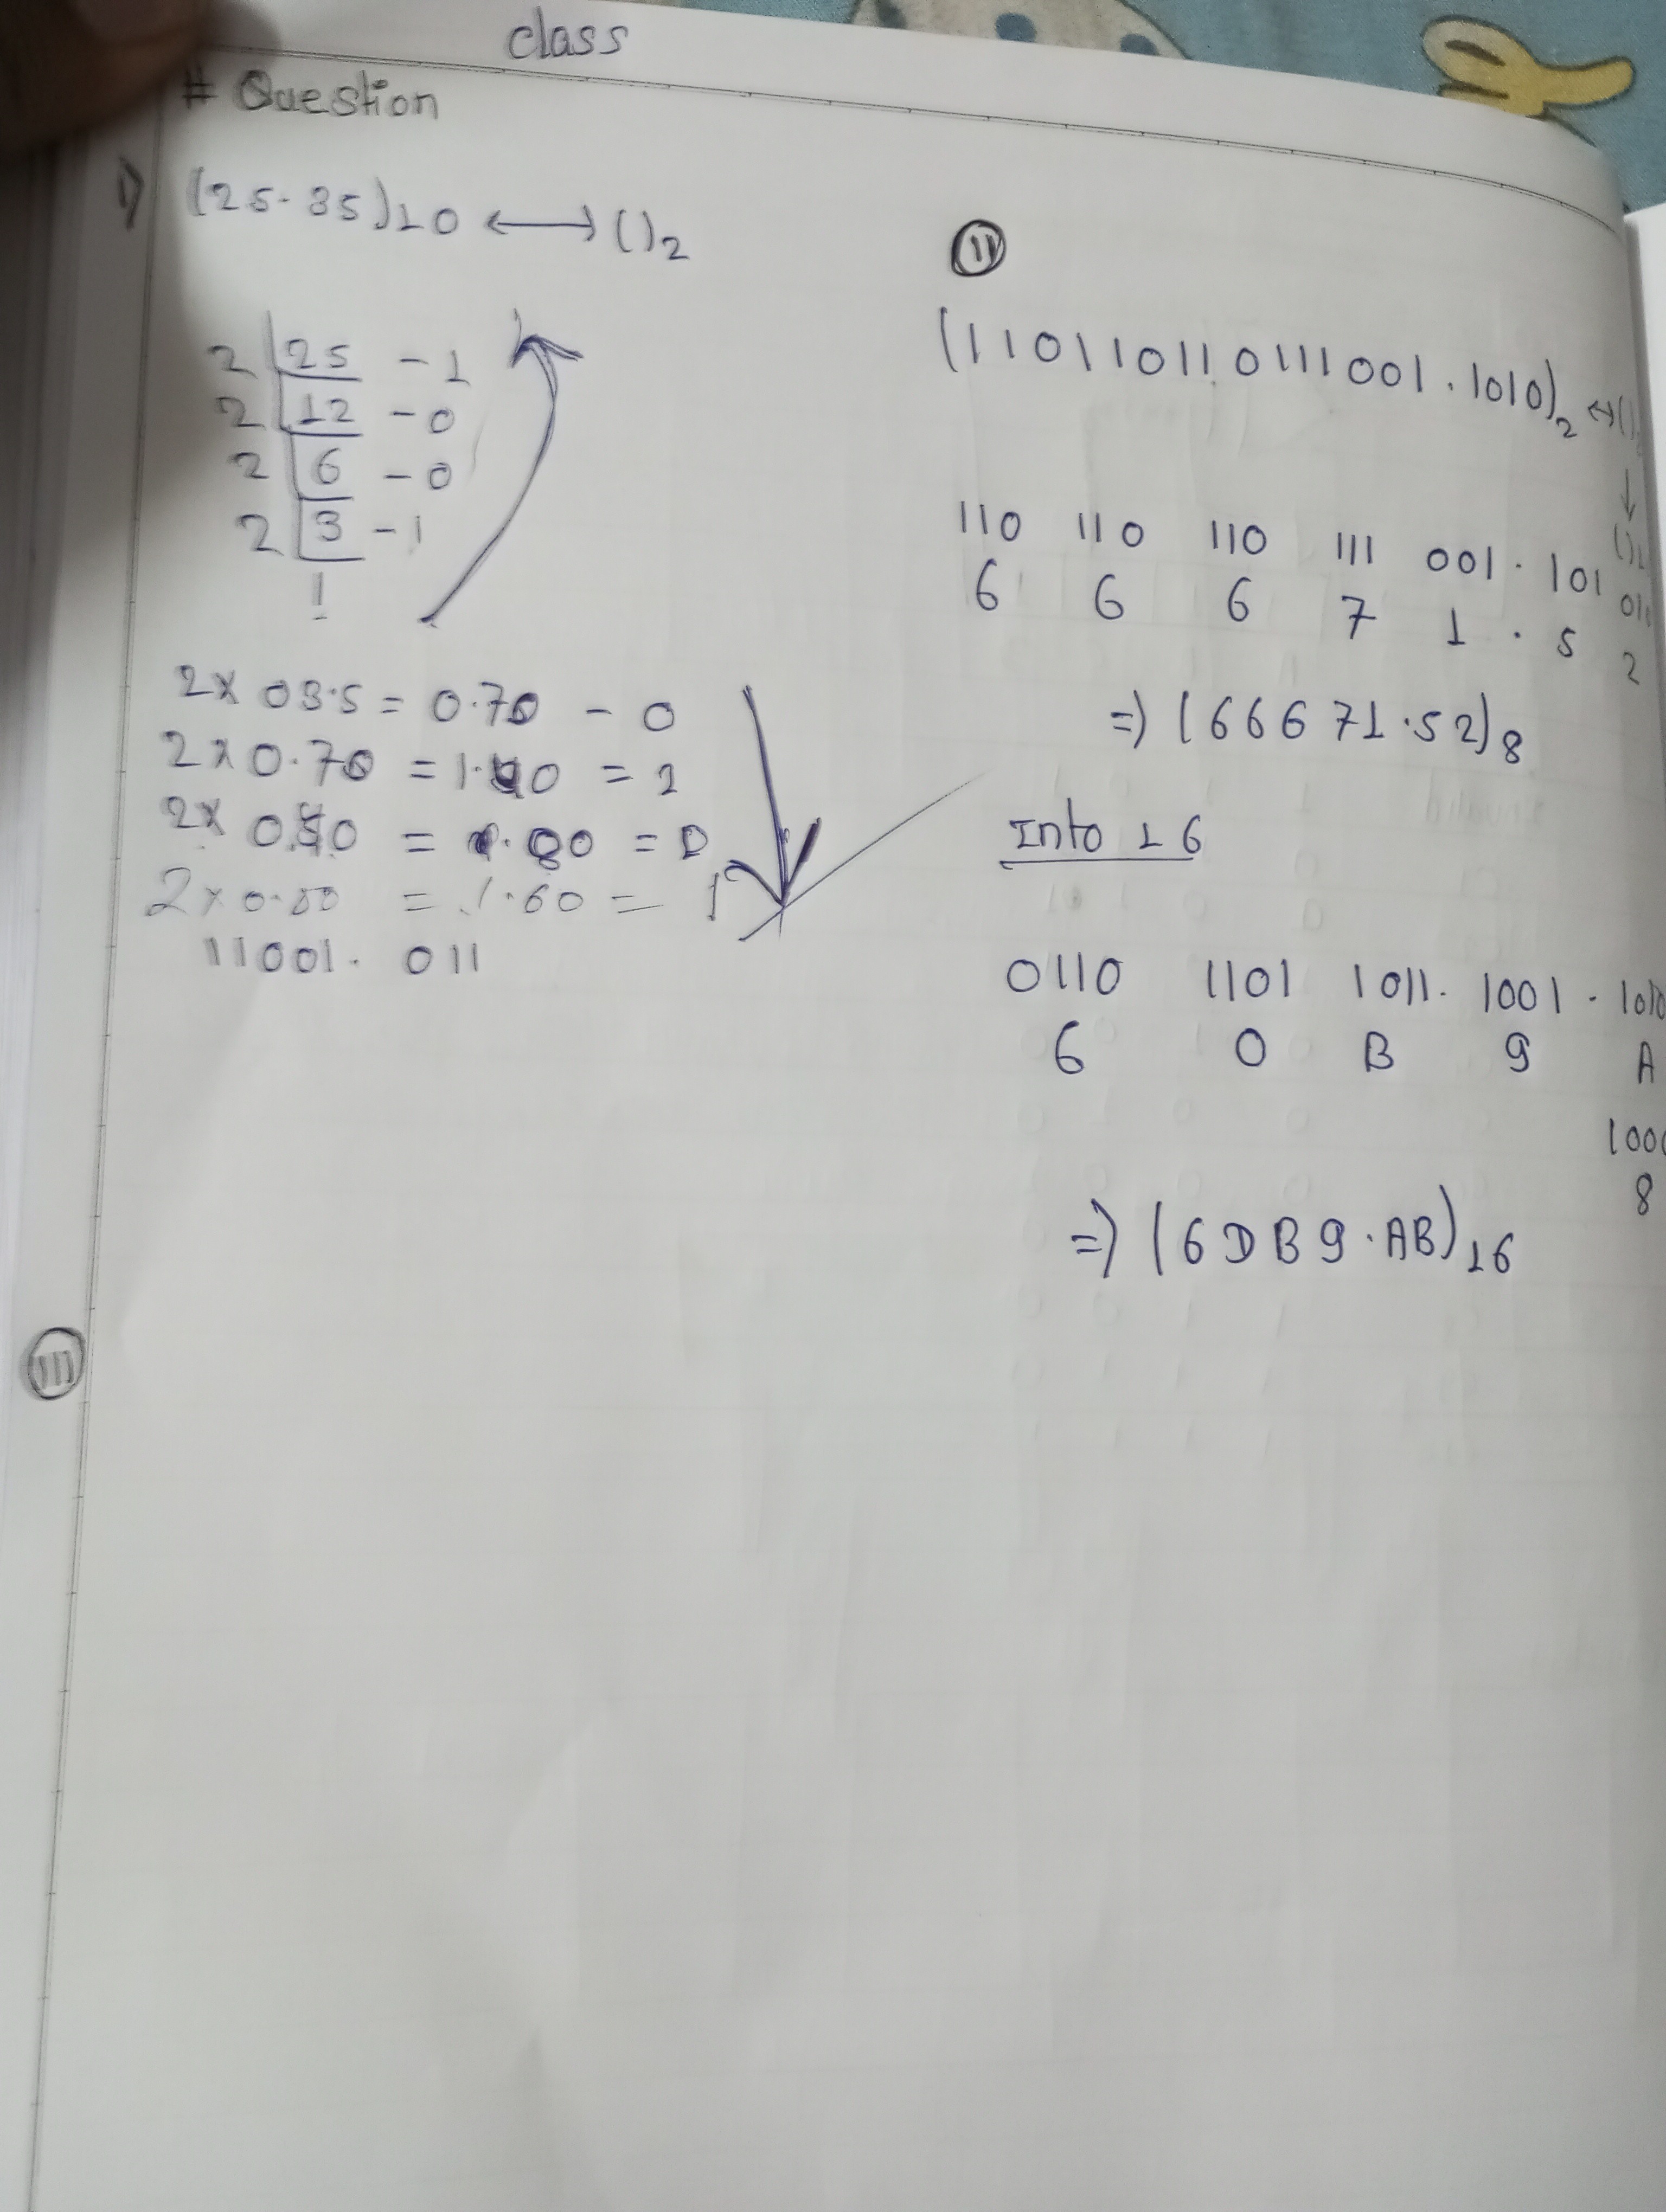 class
# Question
1) (25.35)10 ⟷ ()2
2 25 - 1
2 12 - 0
2 6 - 0
2 3 - 1
1
2x 03.5 = 0.70 - 0
2x0.70 = 1.40 = 1
2x 0.40 = 0.80 = 0
2x0.80 = 1.60 = 1
11001. 011
11
(110110110111001.1010)2 ↔(
110 110 110 111 001. 101
6 6 6 7 1 . 5 2
=) (66671.52)8
Into 16
0110 1101 1011. 1001 . 1010
6 D B 9 A
100
8
=) (6DB9.AB)16
111